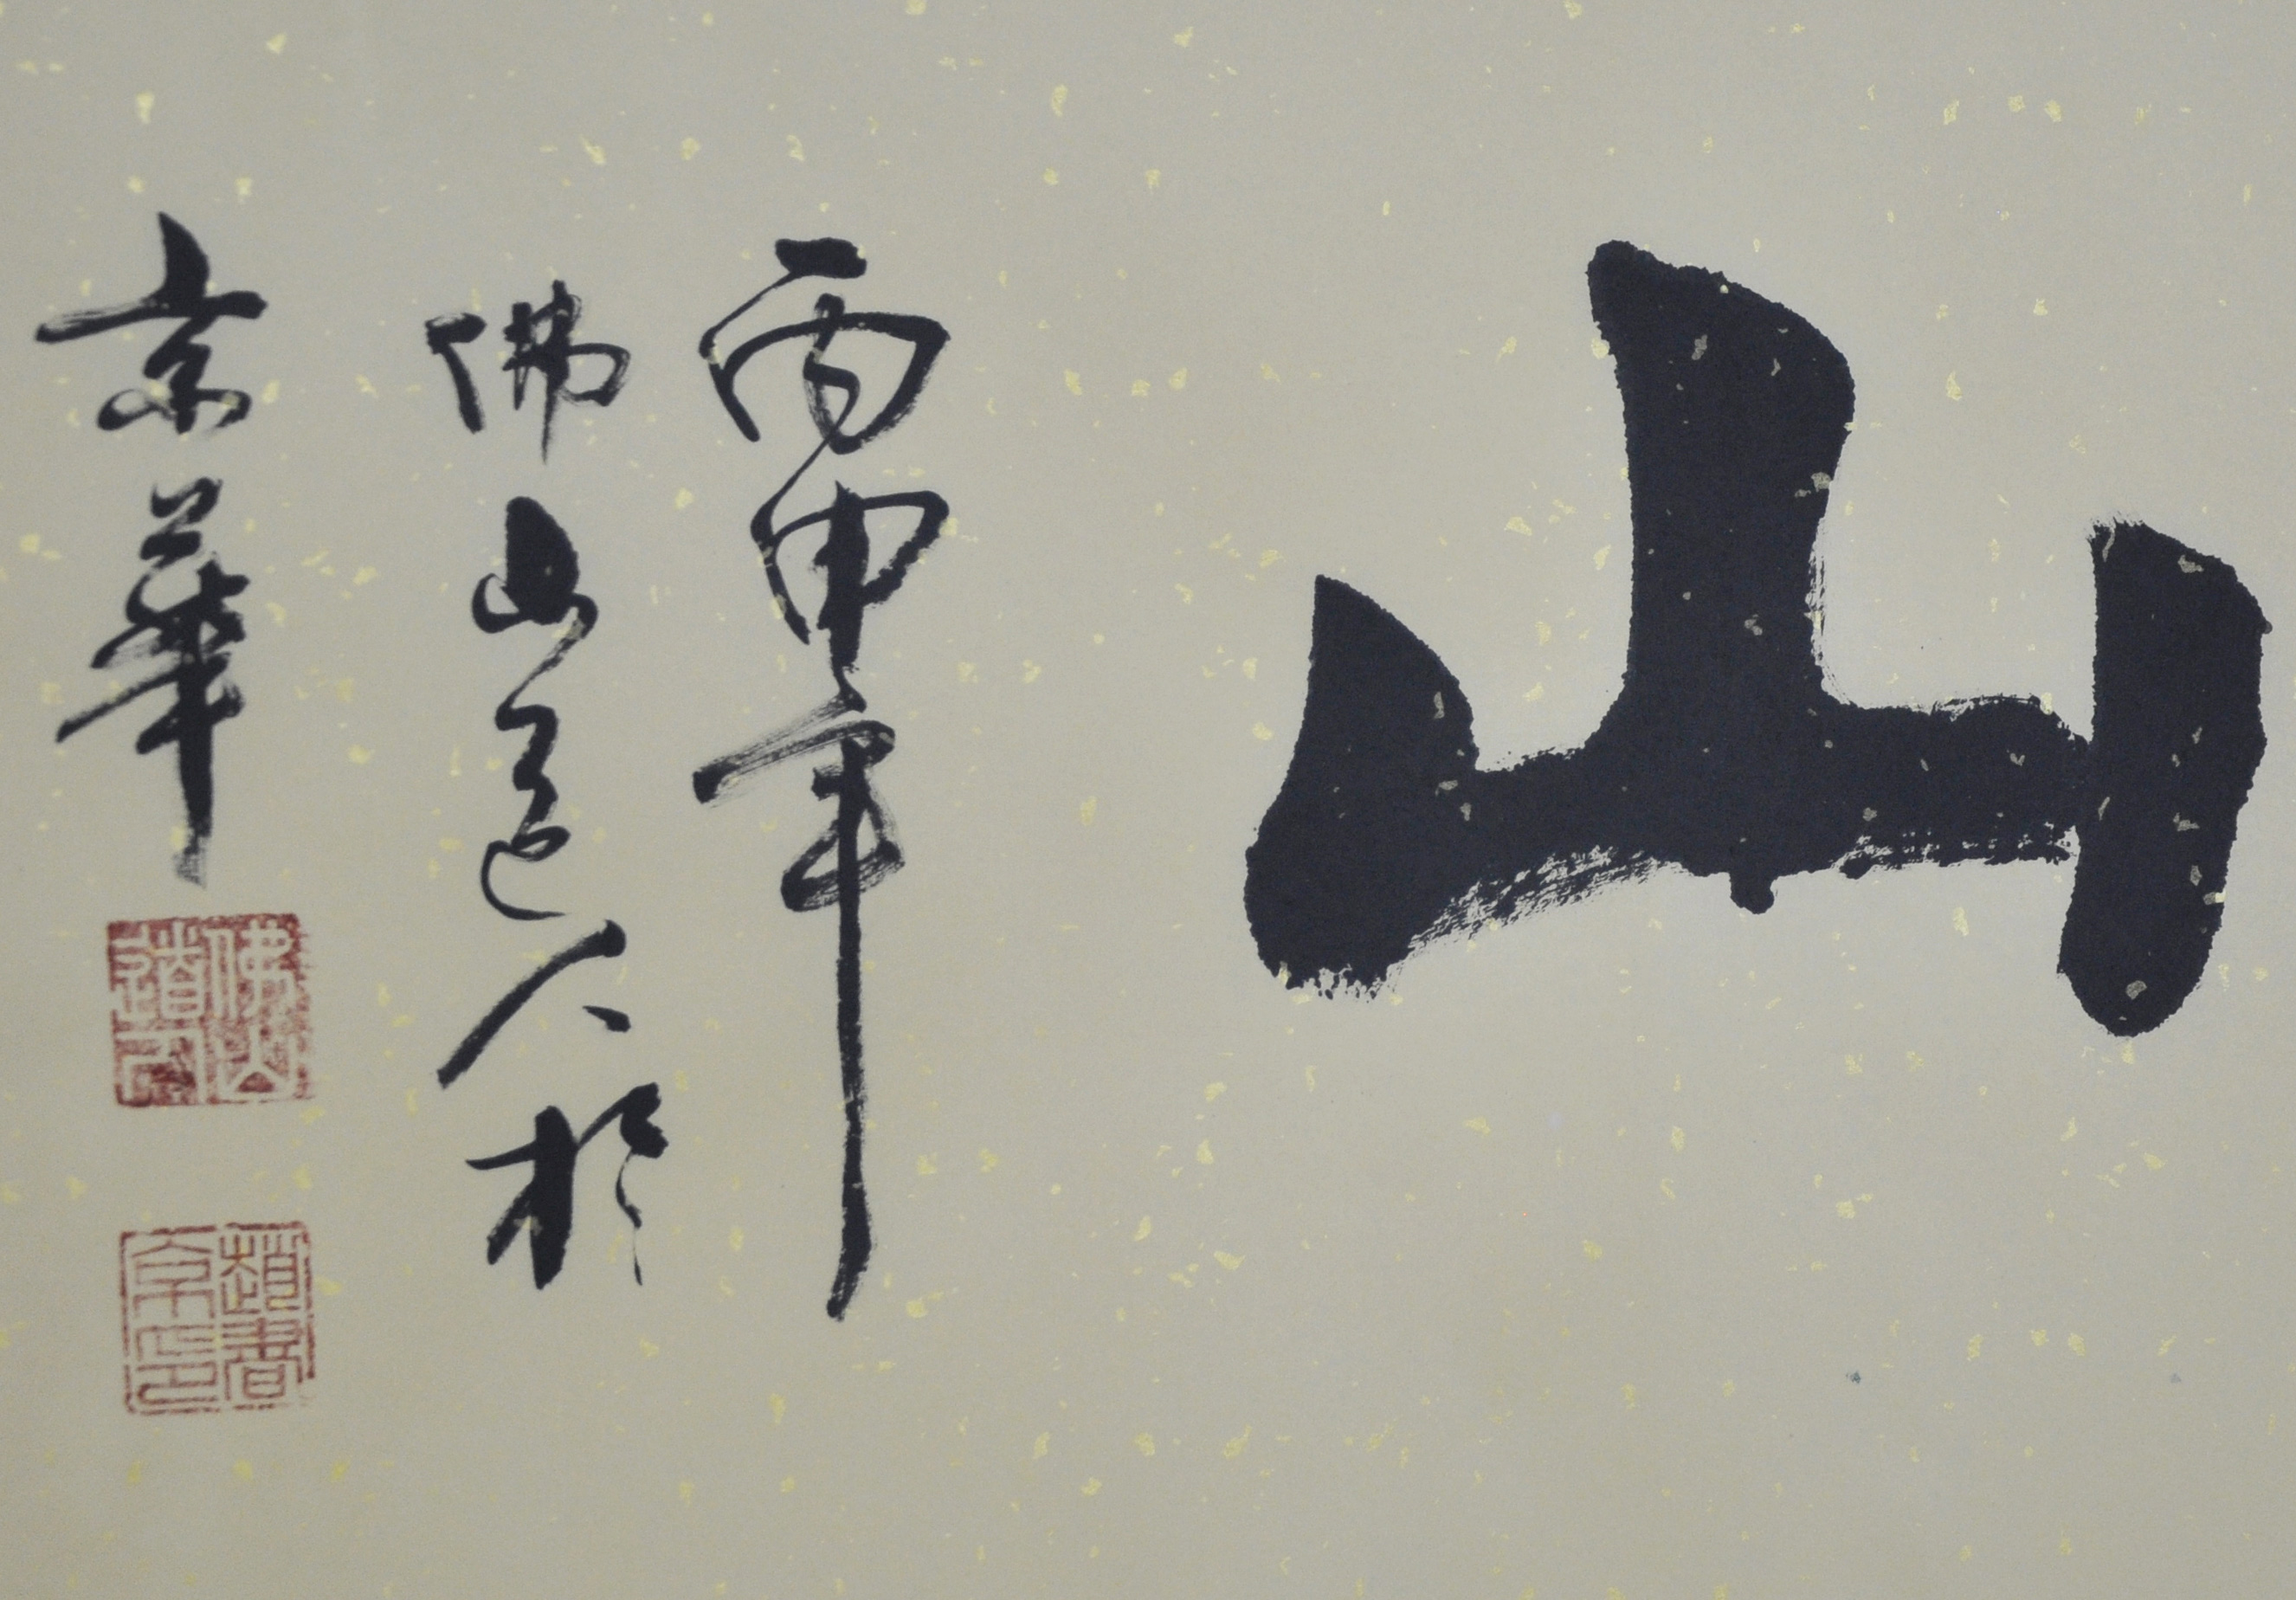 山
丙申年
佛山道人於
京華
佛山道人
趙春京印